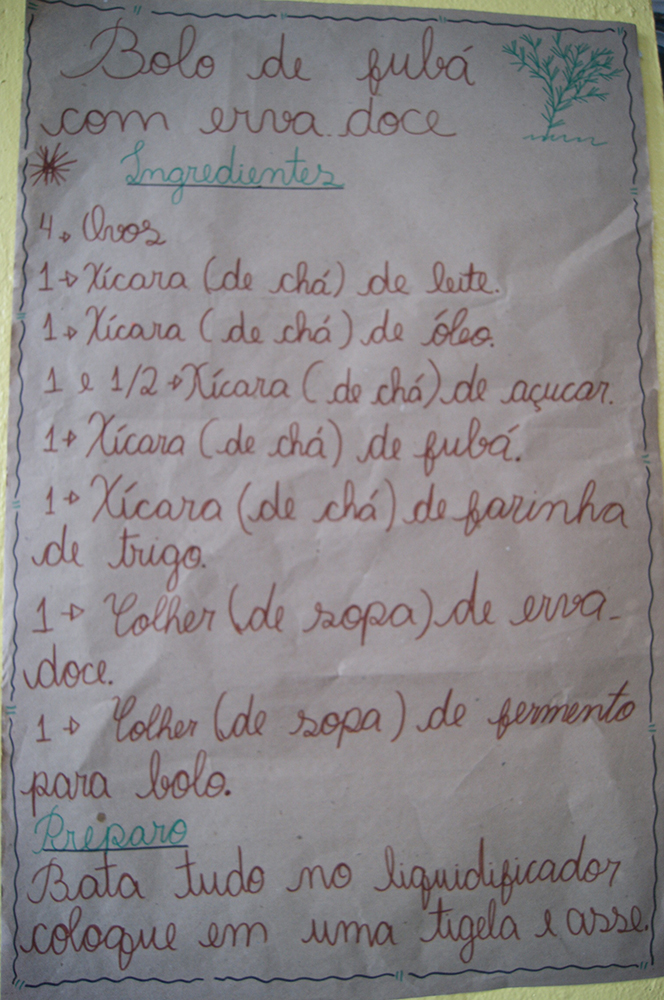 Bolo de fubá
com erva doce
Ingredientes
4→ Ovos
1→ Xícara (de chá) de leite.
1→ Xícara (de chá) de óleo.
1 e 1/2→ Xícara (de chá) de açucar.
1→ Xícara (de chá) de fubá.
1→ Xícara (de chá) de farinha
de trigo.
1→ Colher (de sopa) de erva-
doce.
1→ Colher (de sopa) de fermento
para bolo.
Preparo
Bata tudo no liquidificador
coloque em uma tigela e asse.